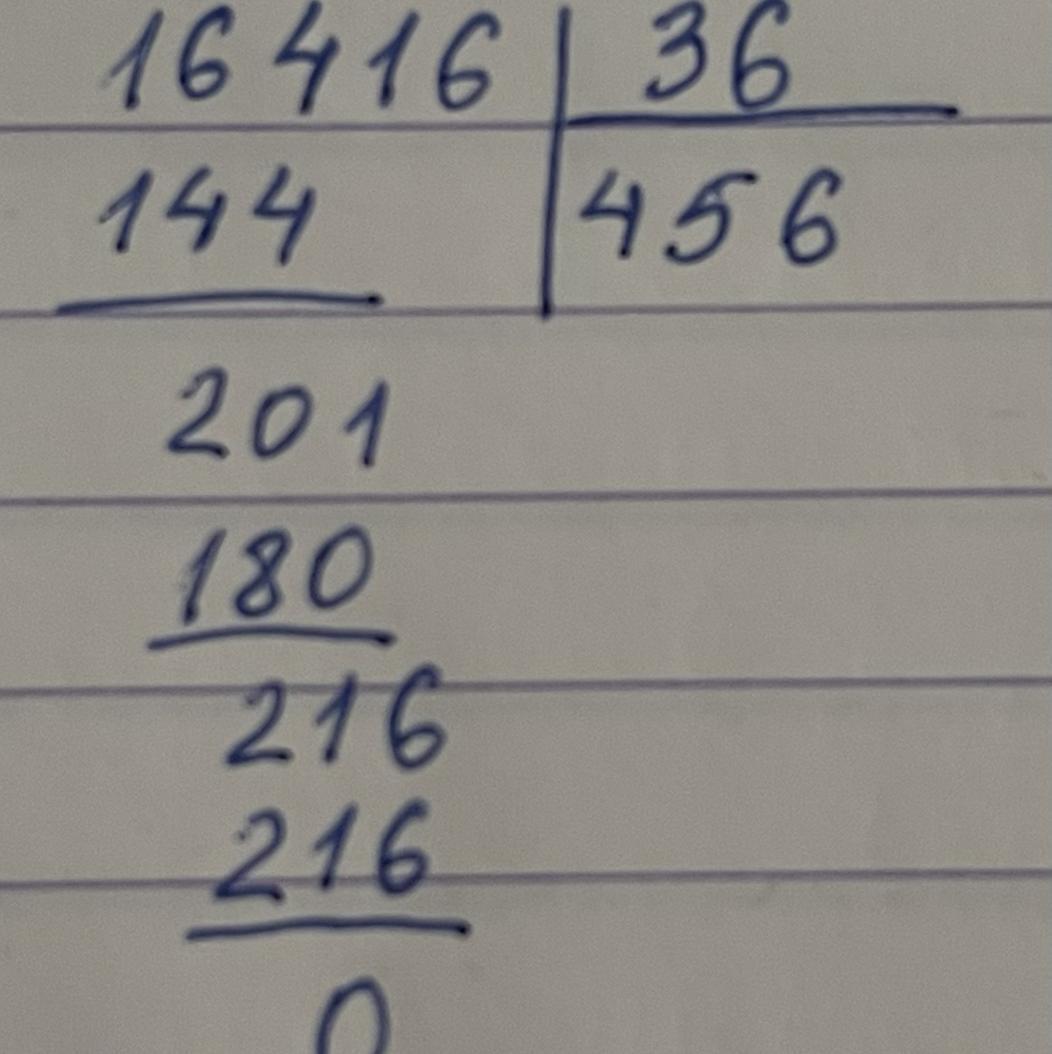 16416 | 36
144 | 456
201
180
216
216
0